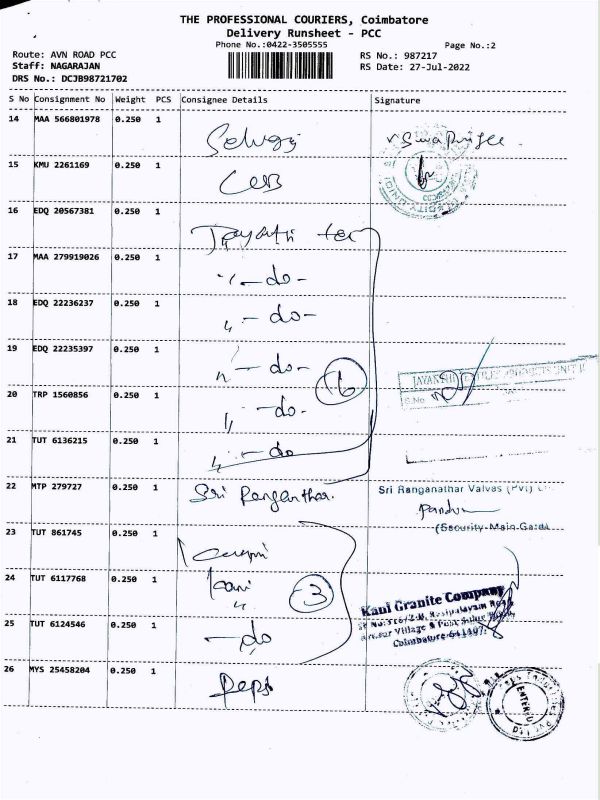 THE PROFESSIONAL COURIERS, Coimbatore
Delivery Runsheet - PCC
Phone No.:0422-3505555
Page No.:2
Route: AVN ROAD PCC
RS No.: 987217
Staff: NAGARAJAN
RS Date: 27-Jul-2022
DRS No.: DCJB98721702
S No Consignment No Weight PCS Consignee Details Signature
14 MAA 566801978 0.250 1
15 KMU 2261169 0.250 1
16 EDQ 20567381 0.250 1
17 MAA 279919026 0.250 1 " - do -
18 EDQ 22236237 0.250 1 " - do -
19 EDQ 22235397 0.250 1 " - do -
6
20 TRP 1560856 0.250 1 " - do -
S.No
21 TUT 6136215 0.250 1 " - do
22 MTP 279727 0.250 1 Sri Ranganthar. Sri Ranganathar Valves (Pvt)
(Security-Main-Gate)
23 TUT 861745 0.250 1
24 TUT 6117768 0.250 1 kani "
3
Kani Granite Company
25 TUT 6124546 0.250 1 - do
Coimbatore-641407.
26 MYS 25458204 0.250 1 Peps
ENTERED